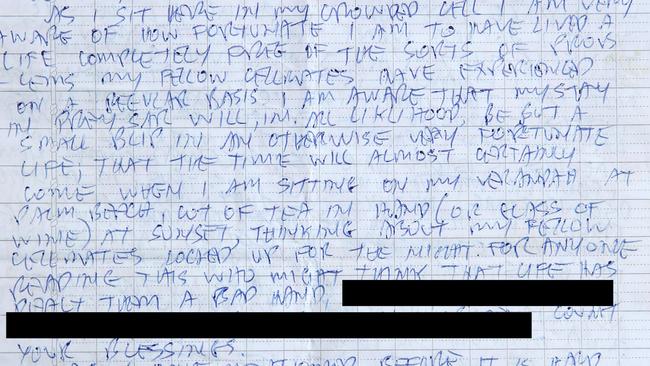 AS I SIT HERE IN MY CROWDED CELL I AM VERY
AWARE OF HOW FORTUNATE I AM TO HAVE LIVED A
LIFE COMPLETELY FREE OF THE SORTS OF PROB
LEMS MY FELLOW CELLMATES HAVE EXPERIENCED
ON A REGULAR BASIS. I AM AWARE THAT MY STAY
IN PREY SAR WILL, IN ALL LIKLIHOOD, BE BUT A
SMALL BLIP IN AN OTHERWISE VERY FORTUNATE
LIFE, THAT THE TIME WILL ALMOST CERTAINLY
COME WHEN I AM SITTING ON MY VERANDAH AT
PALM BEACH, CUP OF TEA IN HAND (OR GLASS OF
WINE) AT SUNSET, THINKING ABOUT MY FELLOW
CELLMATES LOCKED UP FOR THE NIGHT. FOR ANYONE
READING THIS WHO MIGHT THINK THAT LIFE HAS
DEALT THEM A BAD HAND,
COUNT
YOUR BLESSINGS.
BEFORE IT IS HARD